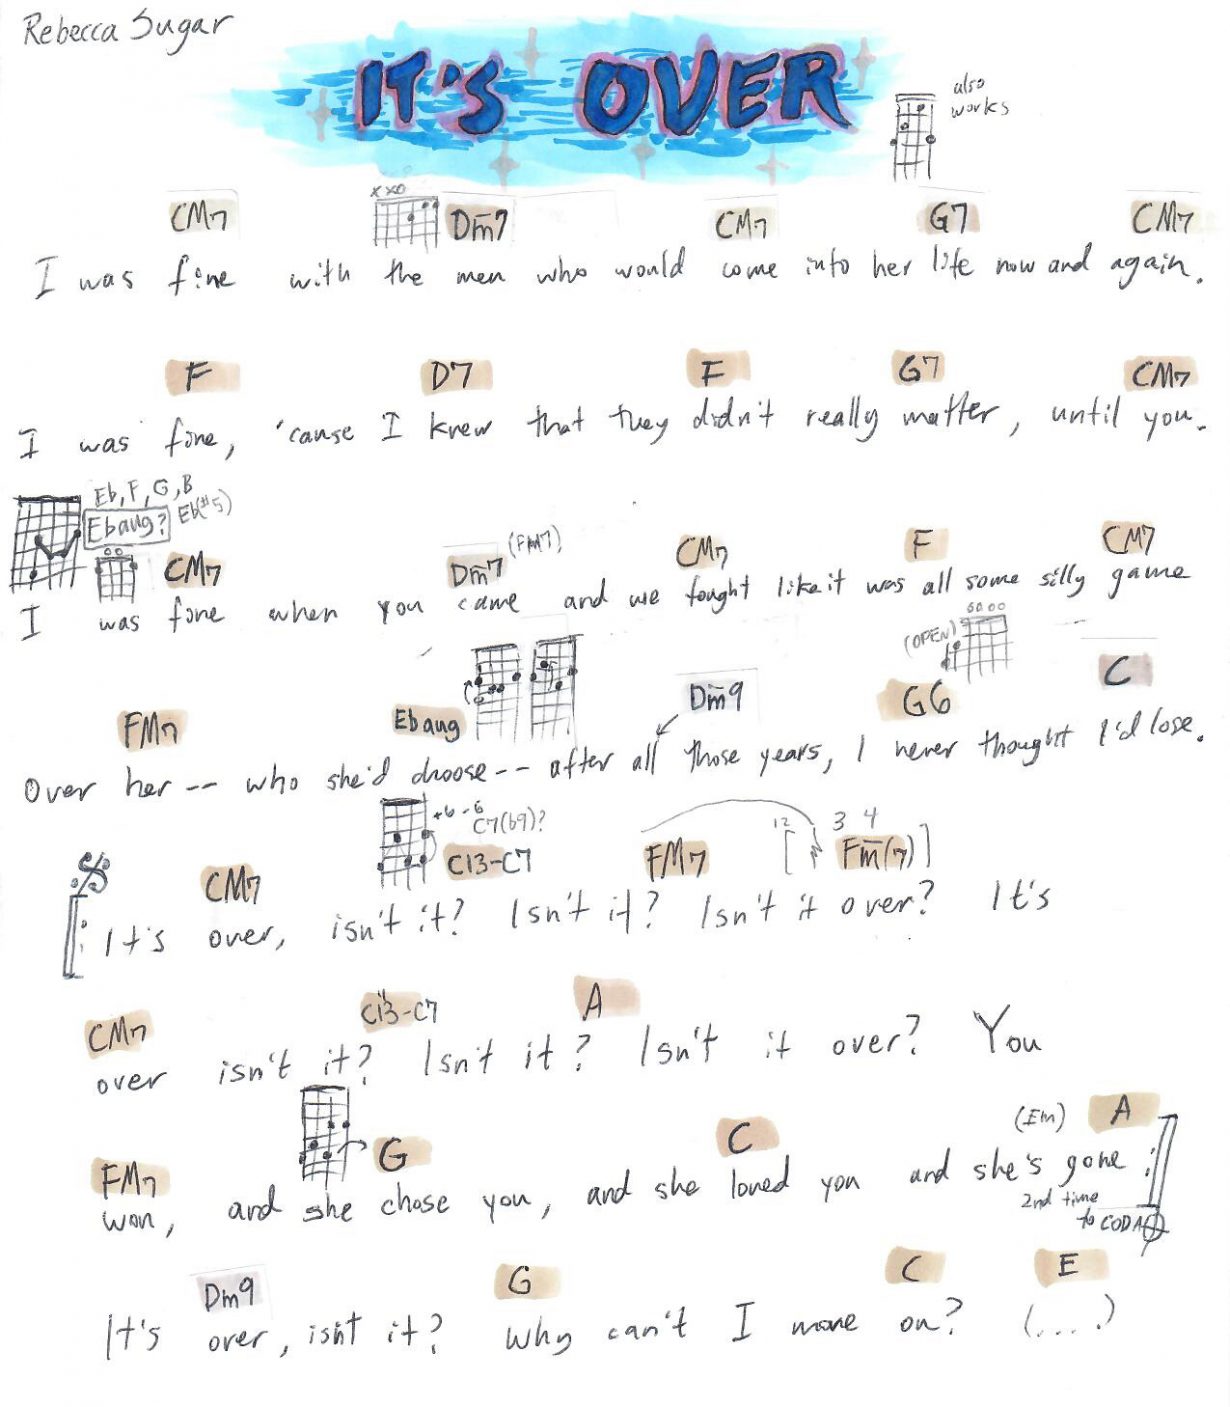 Rebecca Sugar
IT'S OVER
also
works
CM7 x xo Dm7 CM7 G7 CM7
I was fine with the men who would come into her life now and again.
F D7 F G7 CM7
I was fine, 'cause I knew that they didn't really matter, until you.
Eb, F, G, B
Ebaug? Eb(#5)
CM7 Dm7 (FM7) CM7 F CM7
I was fine when you came and we fought like it was all some silly game
(OPEN) oooo
FM7 Ebaug Dm9 G6 C
Over her -- who she'd choose -- after all those years, I never thought I'd lose.
+6 -6
C7(b9)? 12 3 4
CM7 C13-C7 FM7 [ Fm(7) ]
It's over, isn't it? Isn't it? Isn't it over? It's
CM7 C13-C7 A
over isn't it? Isn't it? Isn't it over? You
FM7 G C (Em) A
won, and she chose you, and she loved you and she's gone
2nd time
to CODA
Dm9 G C E
It's over, isn't it? Why can't I move on? (....)